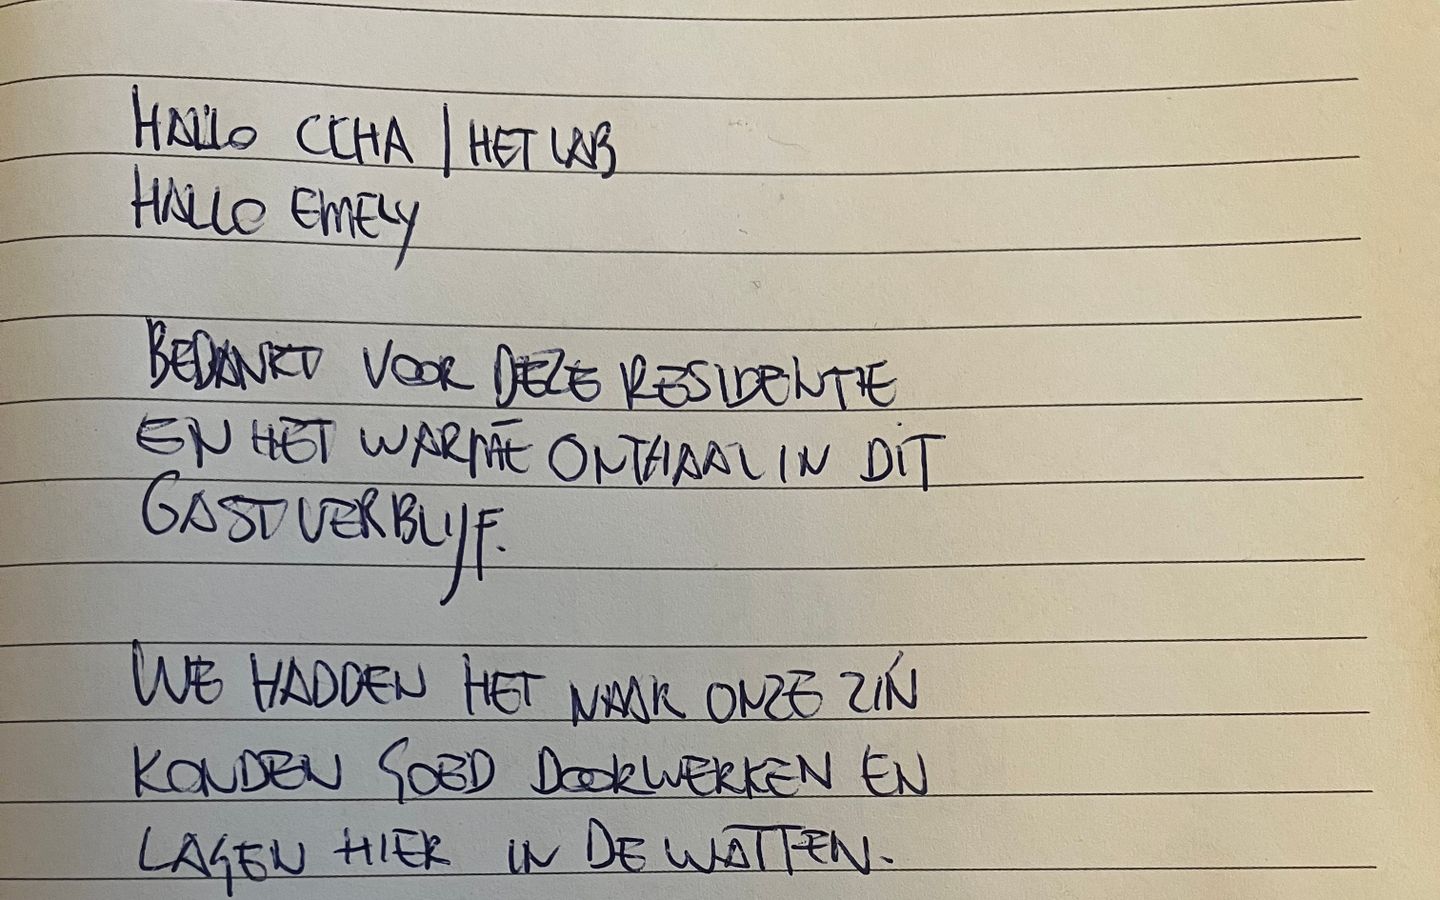 HALLO CCHA | HET LAB
HALLO EMELY
BEDANKT VOOR DEZE RESIDENTIE
EN HET WARME ONTHAAL IN DIT
GASTVERBLIJF.
WE HADDEN HET NAAR ONZE ZIN
KONDEN GOED DOORWERKEN EN
LAGEN HIER IN DE WATTEN.